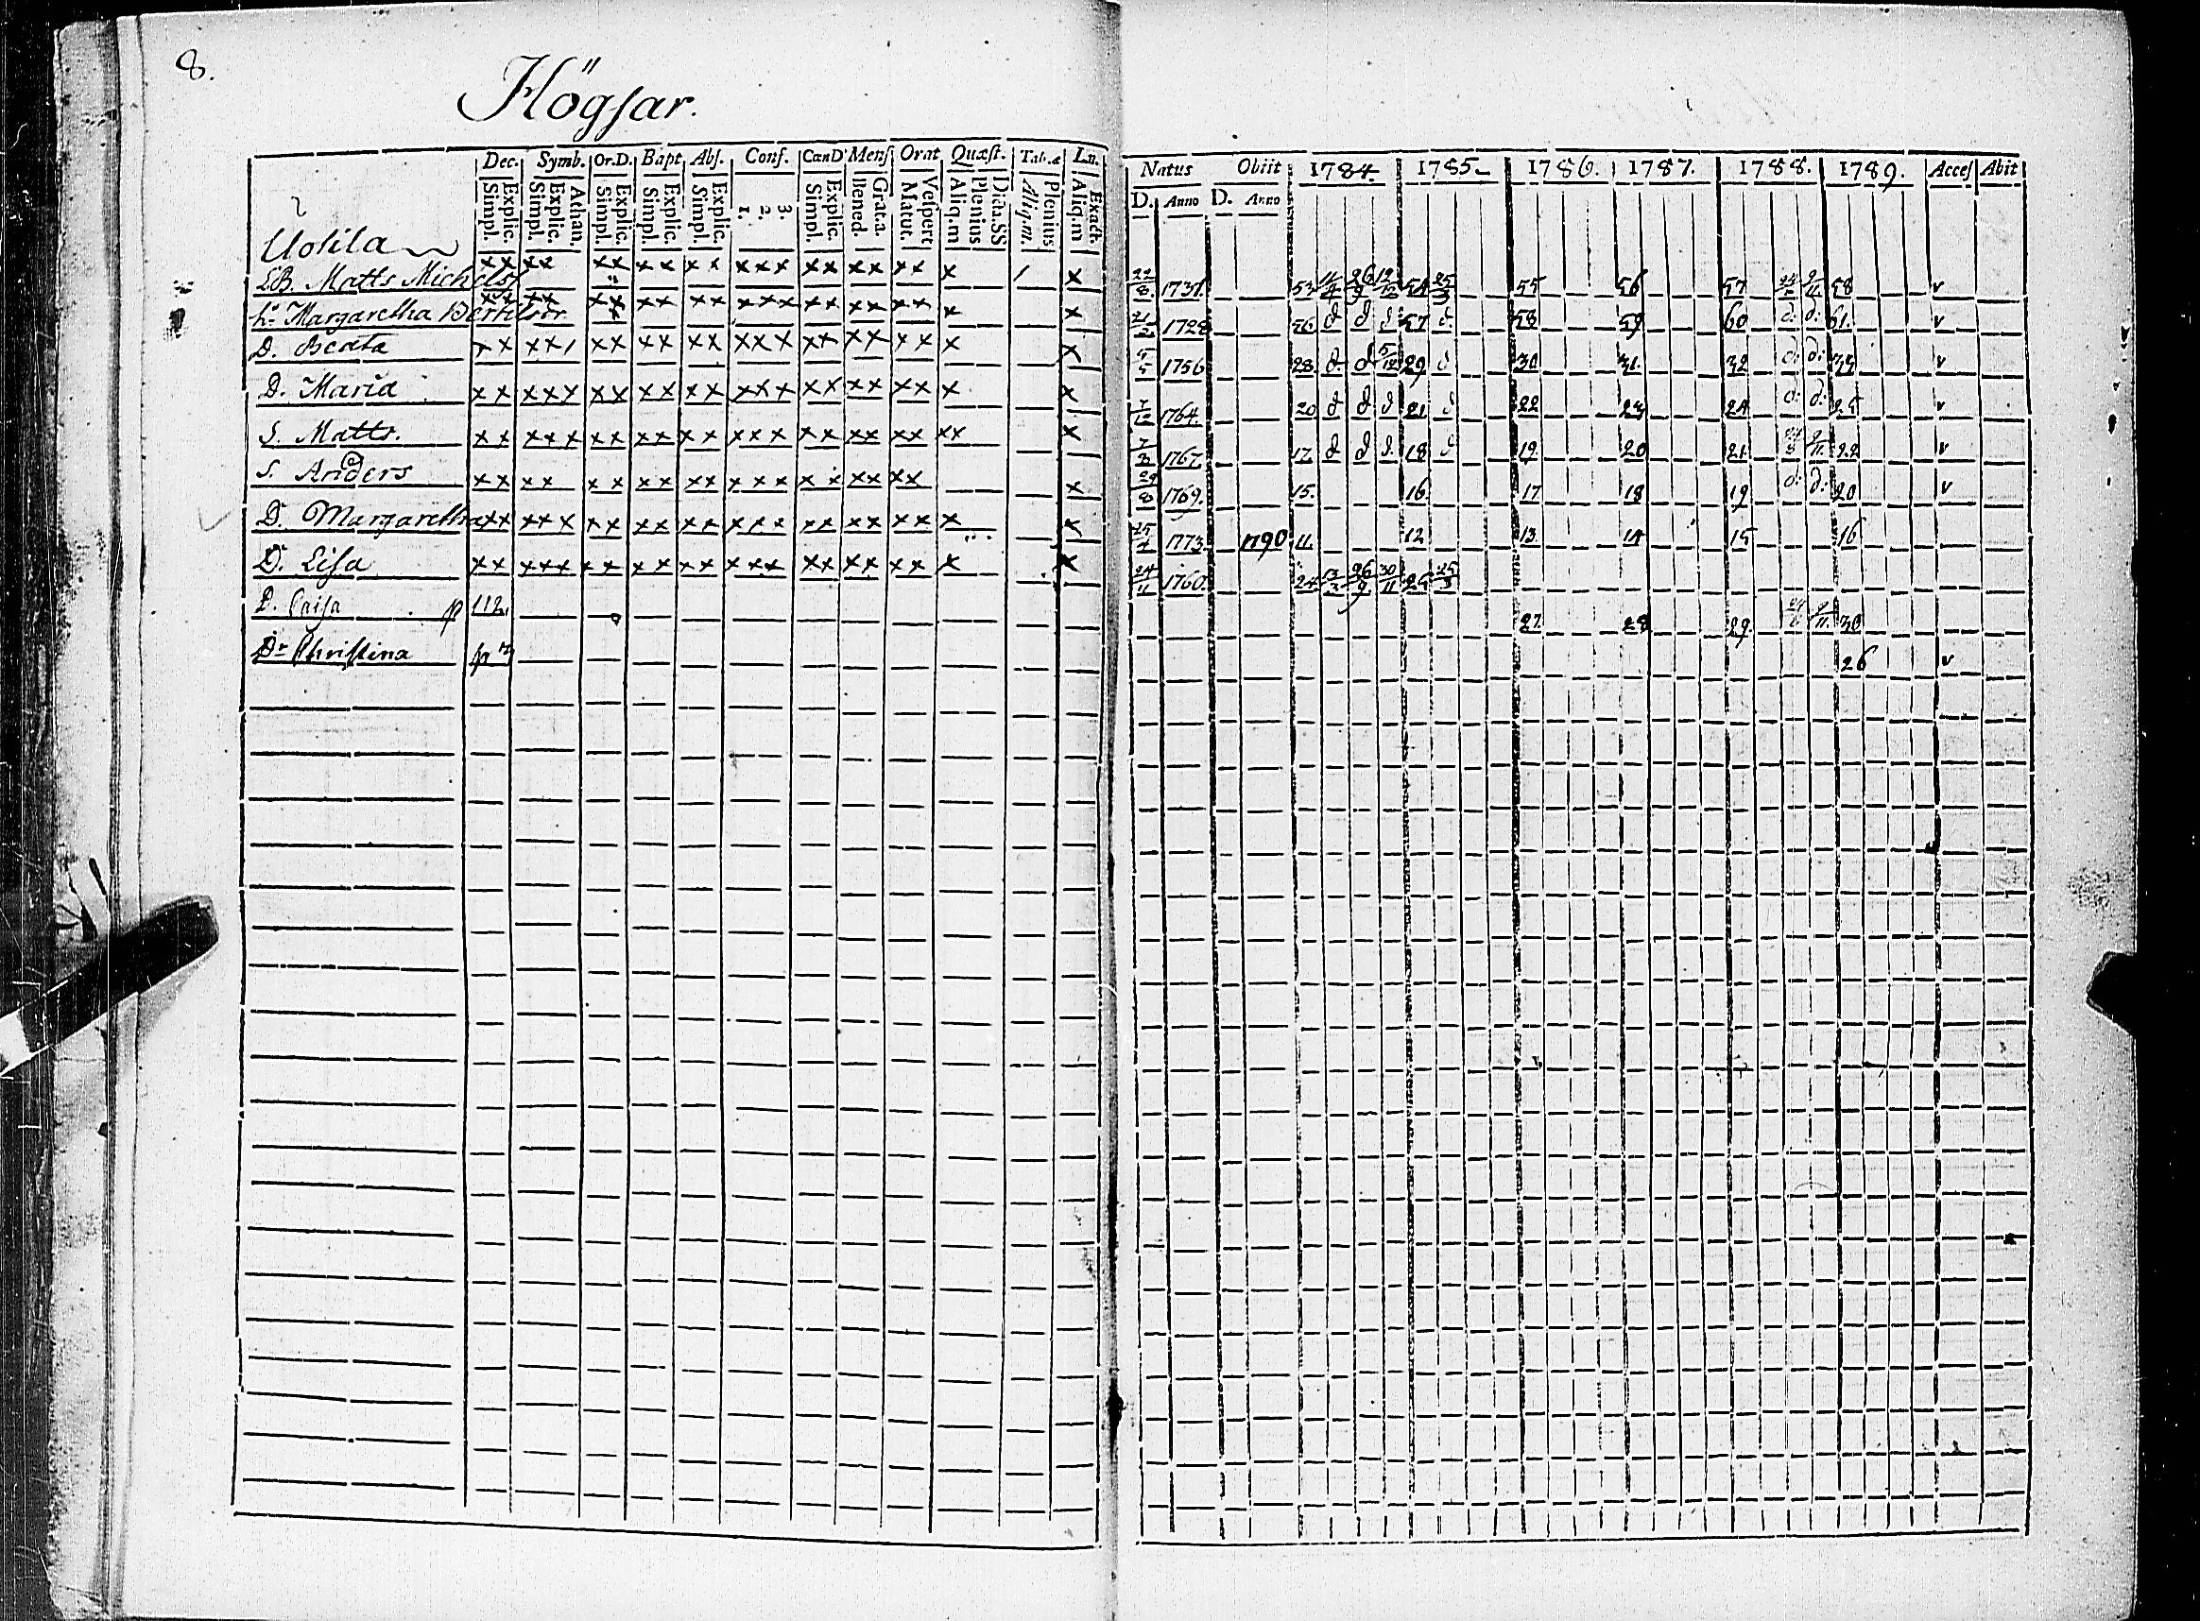 8.
Högsar.
Dec. Symb. Or.D. Bapt Abs. Conf. CœnD Mens Orat Quæst. Tab.æ Natus Obiit 1784. 1785 1786. 1787. 1788. 1789. Acces Abit
Simpl. Explic. Simpl. Explic. Athan. Simpl. Explic. Simpl. Explic. Simpl. Explic. 1. 2. 3. Simpl. Explic. Bened. Grat.a. Matut. Vespert Aliq.m Plenius Dida.SS Aliq.m. Plenius Aliq.m Exact. D. Anno D. Anno
Uolila
LB. Matts Michelss xx xx xx xx xx xxx xx xx xx x / x 22/8 1731. 53 26/9 54 25/3 55 56 57 58 v
h. Margaretha xx xx xx xx xx xxx xx xx xx x x 21/2 1728 56 d d d 57 d. 58 59 60 d. d. 61. v
D. Beata xx xx/ xx xx xx xxx xx xx xx x x 1756 28 d d 5/12 29 d 30 31. 32 d: d: 33 v
D. Maria xx xxx xx xx xx xxx xx xx xx x x 1764. 20 d d d 21 d 22 23 24 d: d: 25 v
S. Matts. xx xxx xx xx xx xxx xx xx xx xx x 1767. 17 d d d. 18 d 19 20 21 22 v
S. Anders xx xx xx xx xx xxx xx xx xx x 29/8 1769. 15. 16. 17 18 19 d: d: 20 v
D. Margaretha xx xxx xx xx xx xxx xx xx xx x x 25/4 1773. 1790 11. 12 13 14 15 16
D. Lisa xx xxx xx xx xx xxx xx xx xx x x 24/11 1760. 24 26/9 30/11 25 25/3
D. Caisa p 112. 27. 28 29. 30
Dr Christina 26 v